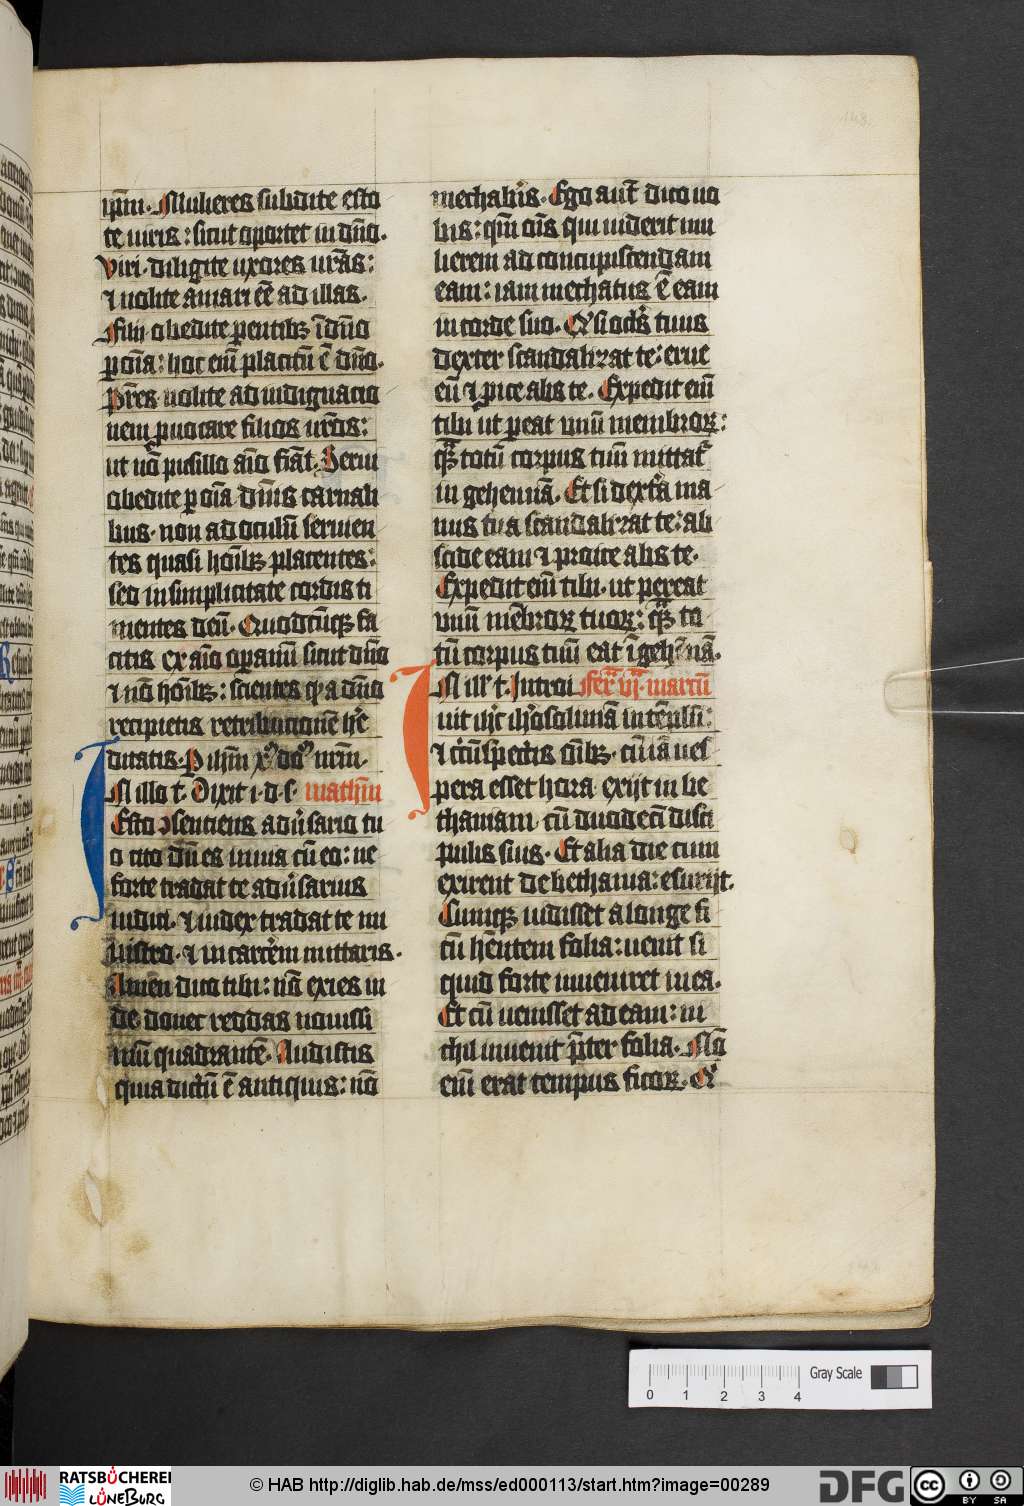 ip̄m. Mulieres subdite esto
te uiris: sicut oportet in dn̄o.
Viri. diligite uxores ur̄as:
⁊ nolite amari eē ad illas.
Filii obedite parentibꝫ ī dn̄o
ꝑ oīa: hoc eni̅ placitū ē dn̄o.
Pr̄es nolite ad indignacio
nem ꝓuocare filios ur̄os:
ut nō pusillo aīo fiāt. Serui
obedite ꝑ oīa dn̄is carnali
bus. non ad oculū seruien
tes quasi hoībꝫ placentes:
sed in simplicitate cordis ti
mentes deū. Quodcūqꝫ fa
citis ex aīo oꝑamī sicut dn̄o
⁊ nō hoībꝫ: scientes qͥa a dn̄o
recipietis retribucionē he̅
ditatis. P ihm̄ xp̄ do᷒ nr̄m.
IN illo t̄. Dixit i. d. s. mathm̄
Esto ꝯsentiens aduˀsario tu
o cito dū es in uia cū eo: ne
forte tradat te aduˀsarius
iudici. ⁊ iudex tradat te mi
nistro. ⁊ in carcerē mittaris.
Amen dico tibi: nō exies in
de donec reddas nouissi
mū quadrantē. Audistis
quia dictū ē antiquis: nō
mechabis. Ego aut̄ dico uo
bis: qm̄ oīs qui uiderit mu
lierem ad concupiscendam
eam: iam mechatus ē eam
in corde suo. Qd̓ si oclˀs tuus
dexter scandalizat te: erue
eū ⁊ ꝓice abs te. Expedit eni̅
tibi ut ꝑeat unū membroꝝ:
qͣ̅ totū corpus tuū mittatˀ
in gehennā. Et si dext̓a ma
nus tua scandalizat te: ab
scide eam ⁊ proice abs te.
Expedit eni̅ tibi. ut pereat
unū mēbroꝝ tuoꝝ: qͣ̅ to
tū corpus tuū eat ī gehēnā.
IN ill̓ t̄. Introi fer̄ vi. marcū
uit ihc̄ iherosolimā in tēplū:
⁊ circūspectis oībꝫ. cū iā ues
pera esset hora exijt in be
thaniam cū duodecī disci
pulis suis. Et alia die cum
exirent de bethania: esurijt.
Cumqꝫ uidisset a longe fi
cū hn̄tem folia: uenit si
quid forte inueniret in ea.
Et cū uenisset ad eam: ni
chil inuenit p̄ter folia. Nō
eni̅ erat tempus ficoꝝ. Et
Gray Scale
0 1 2 3 4
RATSBÜCHEREI
LÜNEBURG
© HAB http://diglib.hab.de/mss/ed000113/start.htm?image=00289
DFG
cc
BY SA